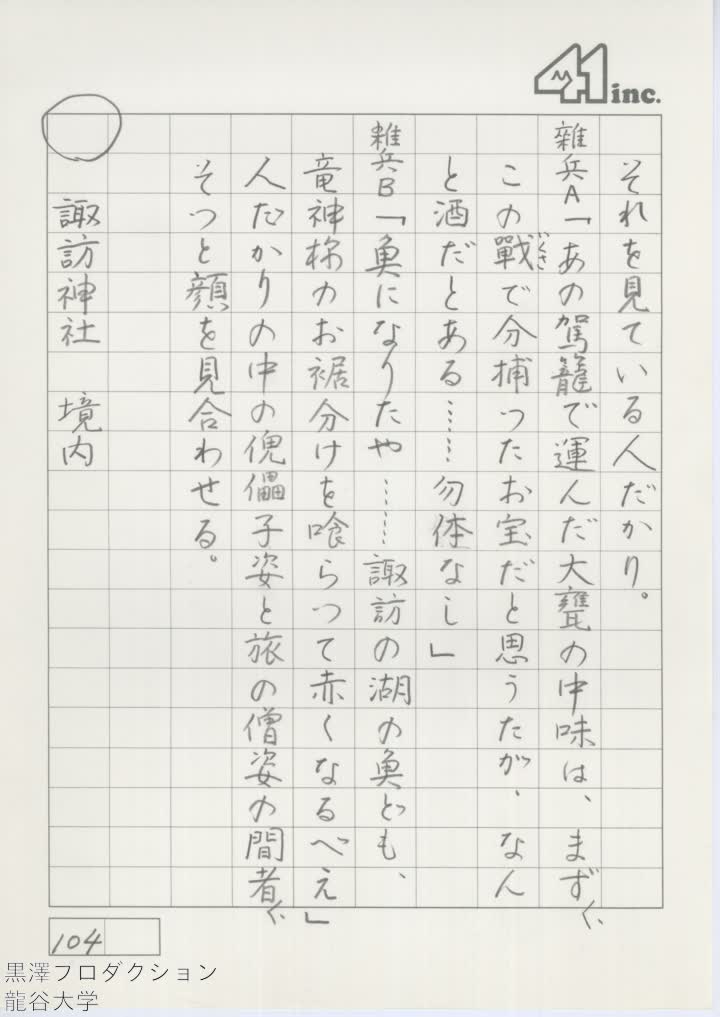 41 inc.
それを見ている人だかり。
雑兵A「あの駕籠で運んだ大甕の中味は、まず〱
この戰(いくさ)で分捕ったお宝だと思うたが、なん
と酒だとある……勿体なし」
雑兵B「魚になりたや……諏訪の湖の魚ども、
竜神様のお裾分けを喰らって赤くなるべえ」
人だかりの中の傀儡子姿と旅の僧姿の間者〱、
そっと顔を見合わせる。
諏訪神社 境内
104
黒澤プロダクション
龍谷大学